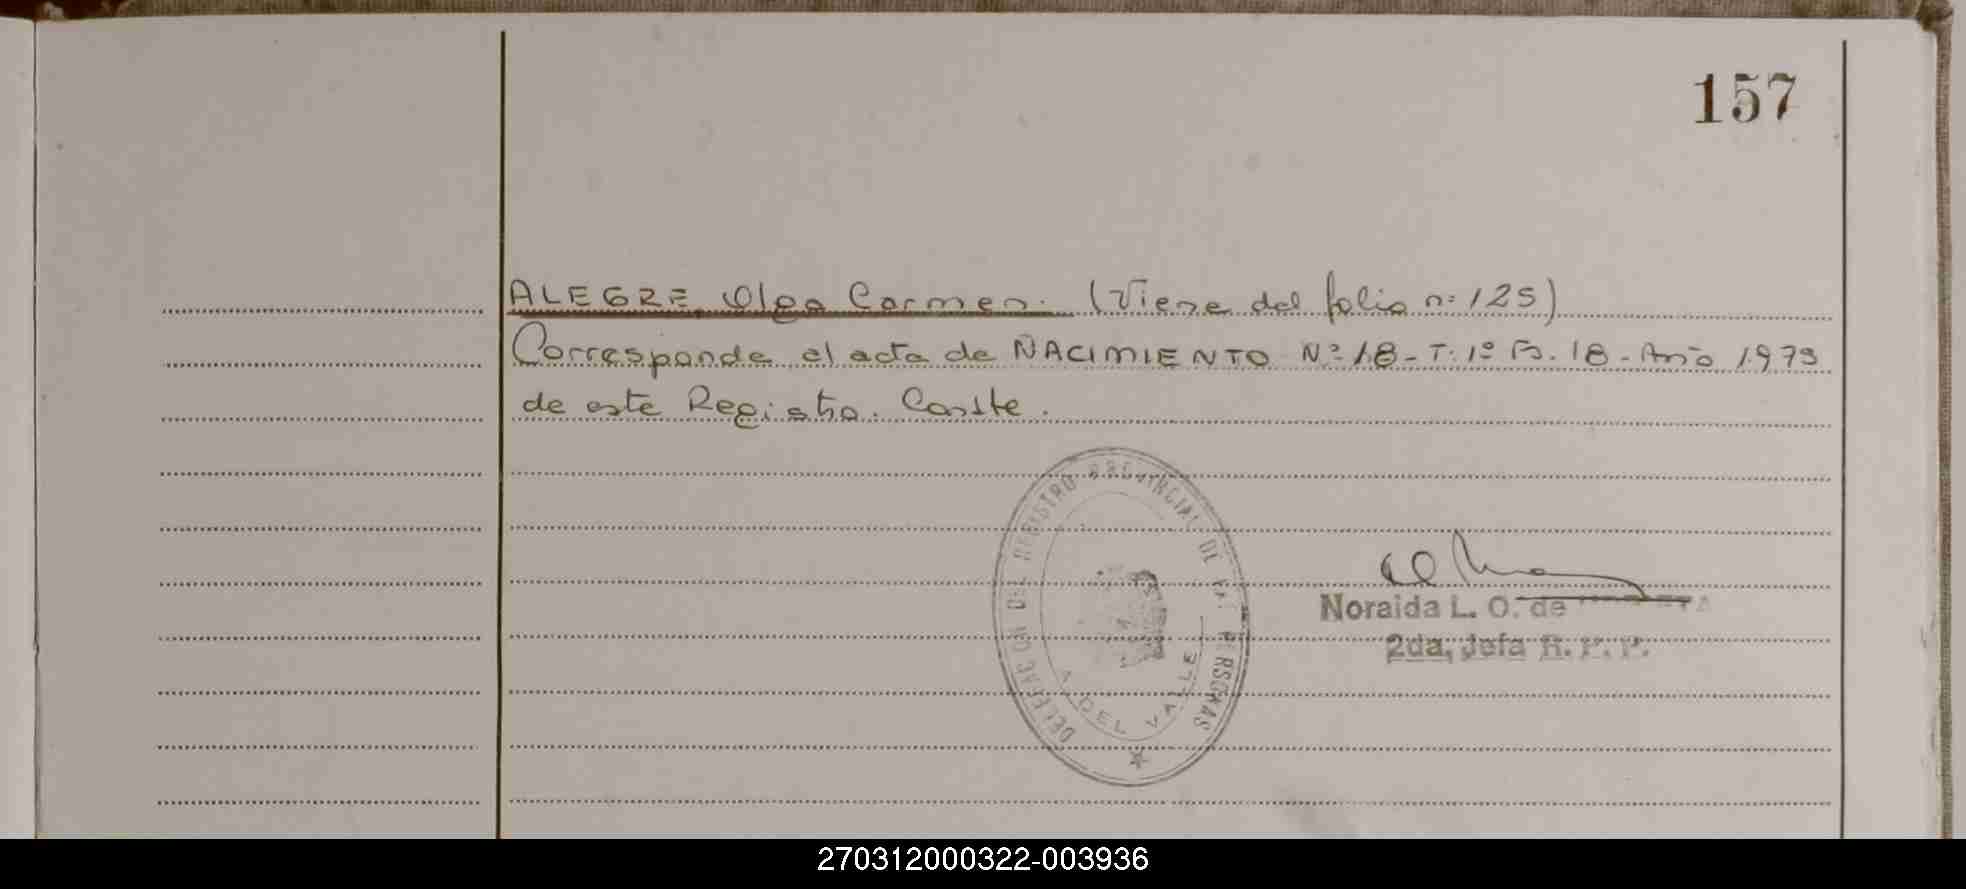 157
ALEGRE, Olga Carmen. (Viene del folio nº 125)
Corresponde al acta de NACIMIENTO Nº 18 - T: 1º Fs. 18 - Año 1979
de este Registro. Conste.
DELEGACION DEL REGISTRO PROVINCIAL DE LAS PERSONAS
DEL VALLE
Noraida L. O. de
2da. Jefa R. P. P.
270312000322-003936